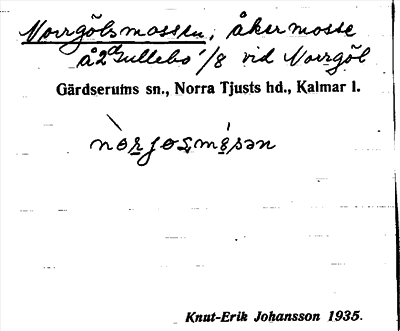 Norrgölsmossen, åkermosse
å 2 Gullebo 1/8 vid Norrgöl
Gärdserums sn., Norra Tjusts hd., Kalmar l.
Knut-Erik Johansson 1935.